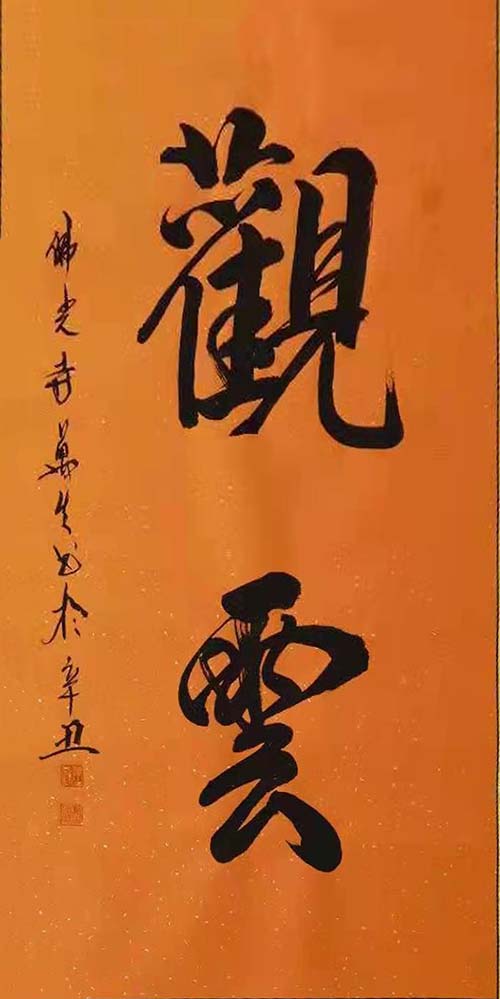 觀雲
佛光寺萬生书於辛丑